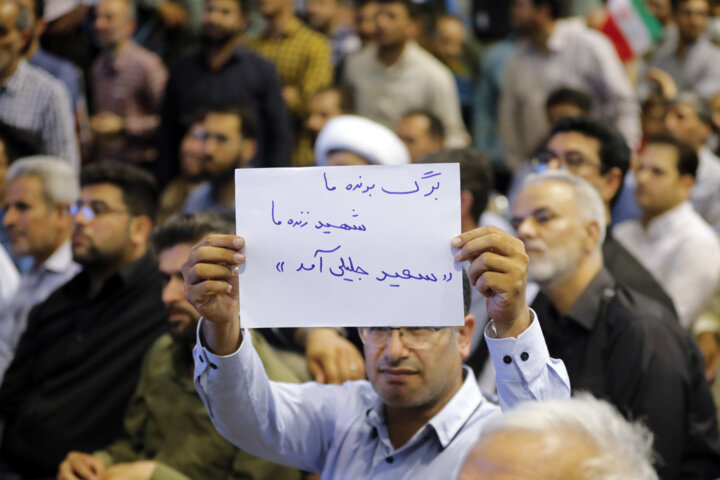 برگ برنده ما
شهید زنده ما
«سعید جلیلی آمد»